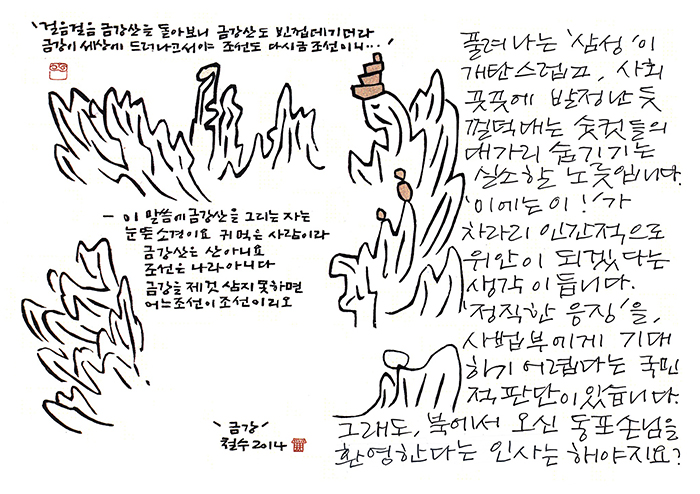 '걸음걸음 금강산을 돌아보니 금강산도 빈껍데기더라
금강이 세상에 드러나고서야 조선도 다시금 조선이니…'
– 이 말씀에 금강산을 그리는 자는
눈뜬 소경이요 귀먹은 사람이라
금강산은 산아니요
조선은 나라아니다
금강을 제것 삼지 못하면
어느조선이 조선이리오
'금강'
철수 2014
풀려나는 '삼성'이
개탄스럽고, 사회
곳곳에 발정난 듯
껄떡대는 숫컷들의
대가리 숨기기는
실소할 노릇입니다.
'이에는 이!'가
차라리 인간적으로
위안이 되겠다는
생각이 듭니다.
'정직한 응징'을,
사법부에게 기대
하기 어렵다는 국민
적 판단이 있습니다.
그래도, 북에서 오신 동포손님을
환영한다는 인사는 해야지요?